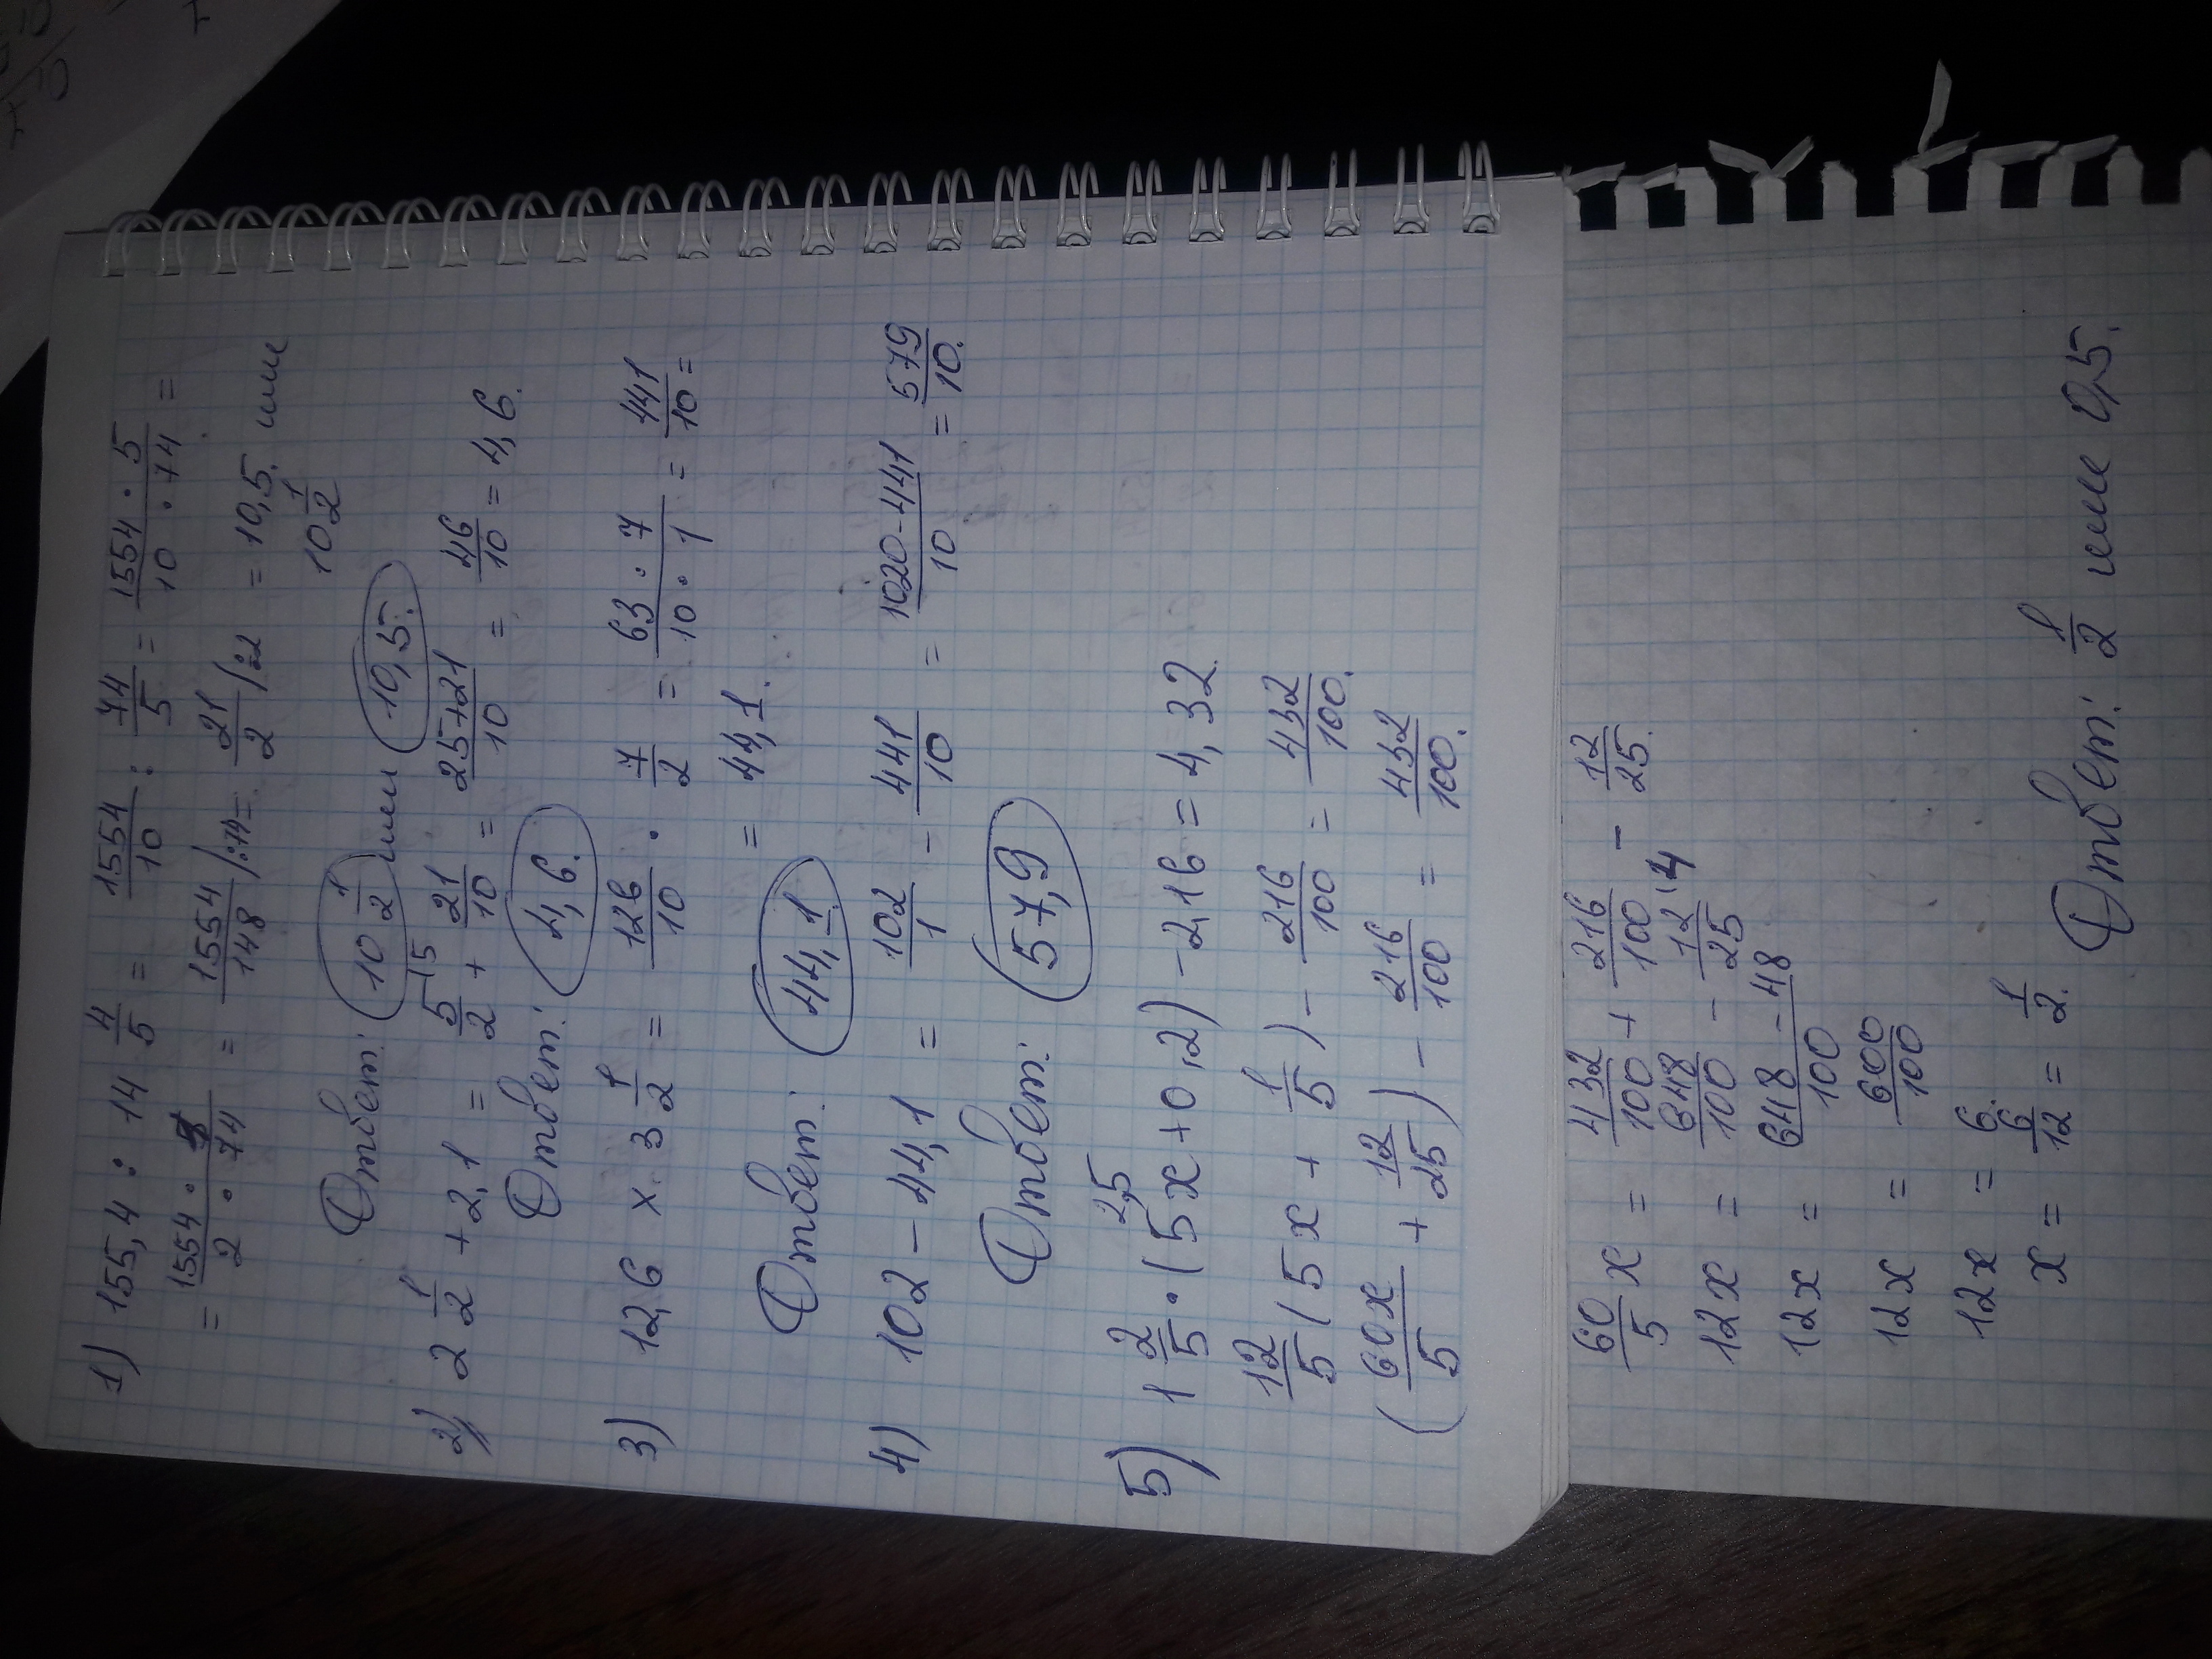 1) 155,4 : 14 4/5 = 1554/10 : 74/5 = 1554 · 5/10 · 74 =
= 1554 · /2 · 74 = 1554/148 /:74 = 21/2 /:2 = 10,5. или
10 1/2
Ответ: 10 1/2 или 10,5.
2) 2 1/2 + 2,1 = 5/2 \5 + 21/10 = 25+21/10 = 46/10 = 4,6.
Ответ: 4,6.
3) 12,6 x 3 1/2 = 126/10 · 7/2 = 63 · 7/10 · 1 = 441/10 =
= 44,1.
Ответ: 44,1.
4) 102 - 44,1 = 102/1 - 441/10 = 1020-441/10 = 579/10.
Ответ: 57,9
2,5
5) 1 2/5 · (5x+0,2) - 2,16 = 4,32.
12/5 (5x + 1/5) - 216/100 = 432/100.
(60x/5 + 12/25) - 216/100 = 432/100.
60/5 x = 432/100 + 216/100 - 12/25.
12x = 648/100 - 12/25 \4
12x = 648-48/100
12x = 600/100
12x = 6.
x = 6/12 = 1/2. Ответ: 1/2 или 0,5.